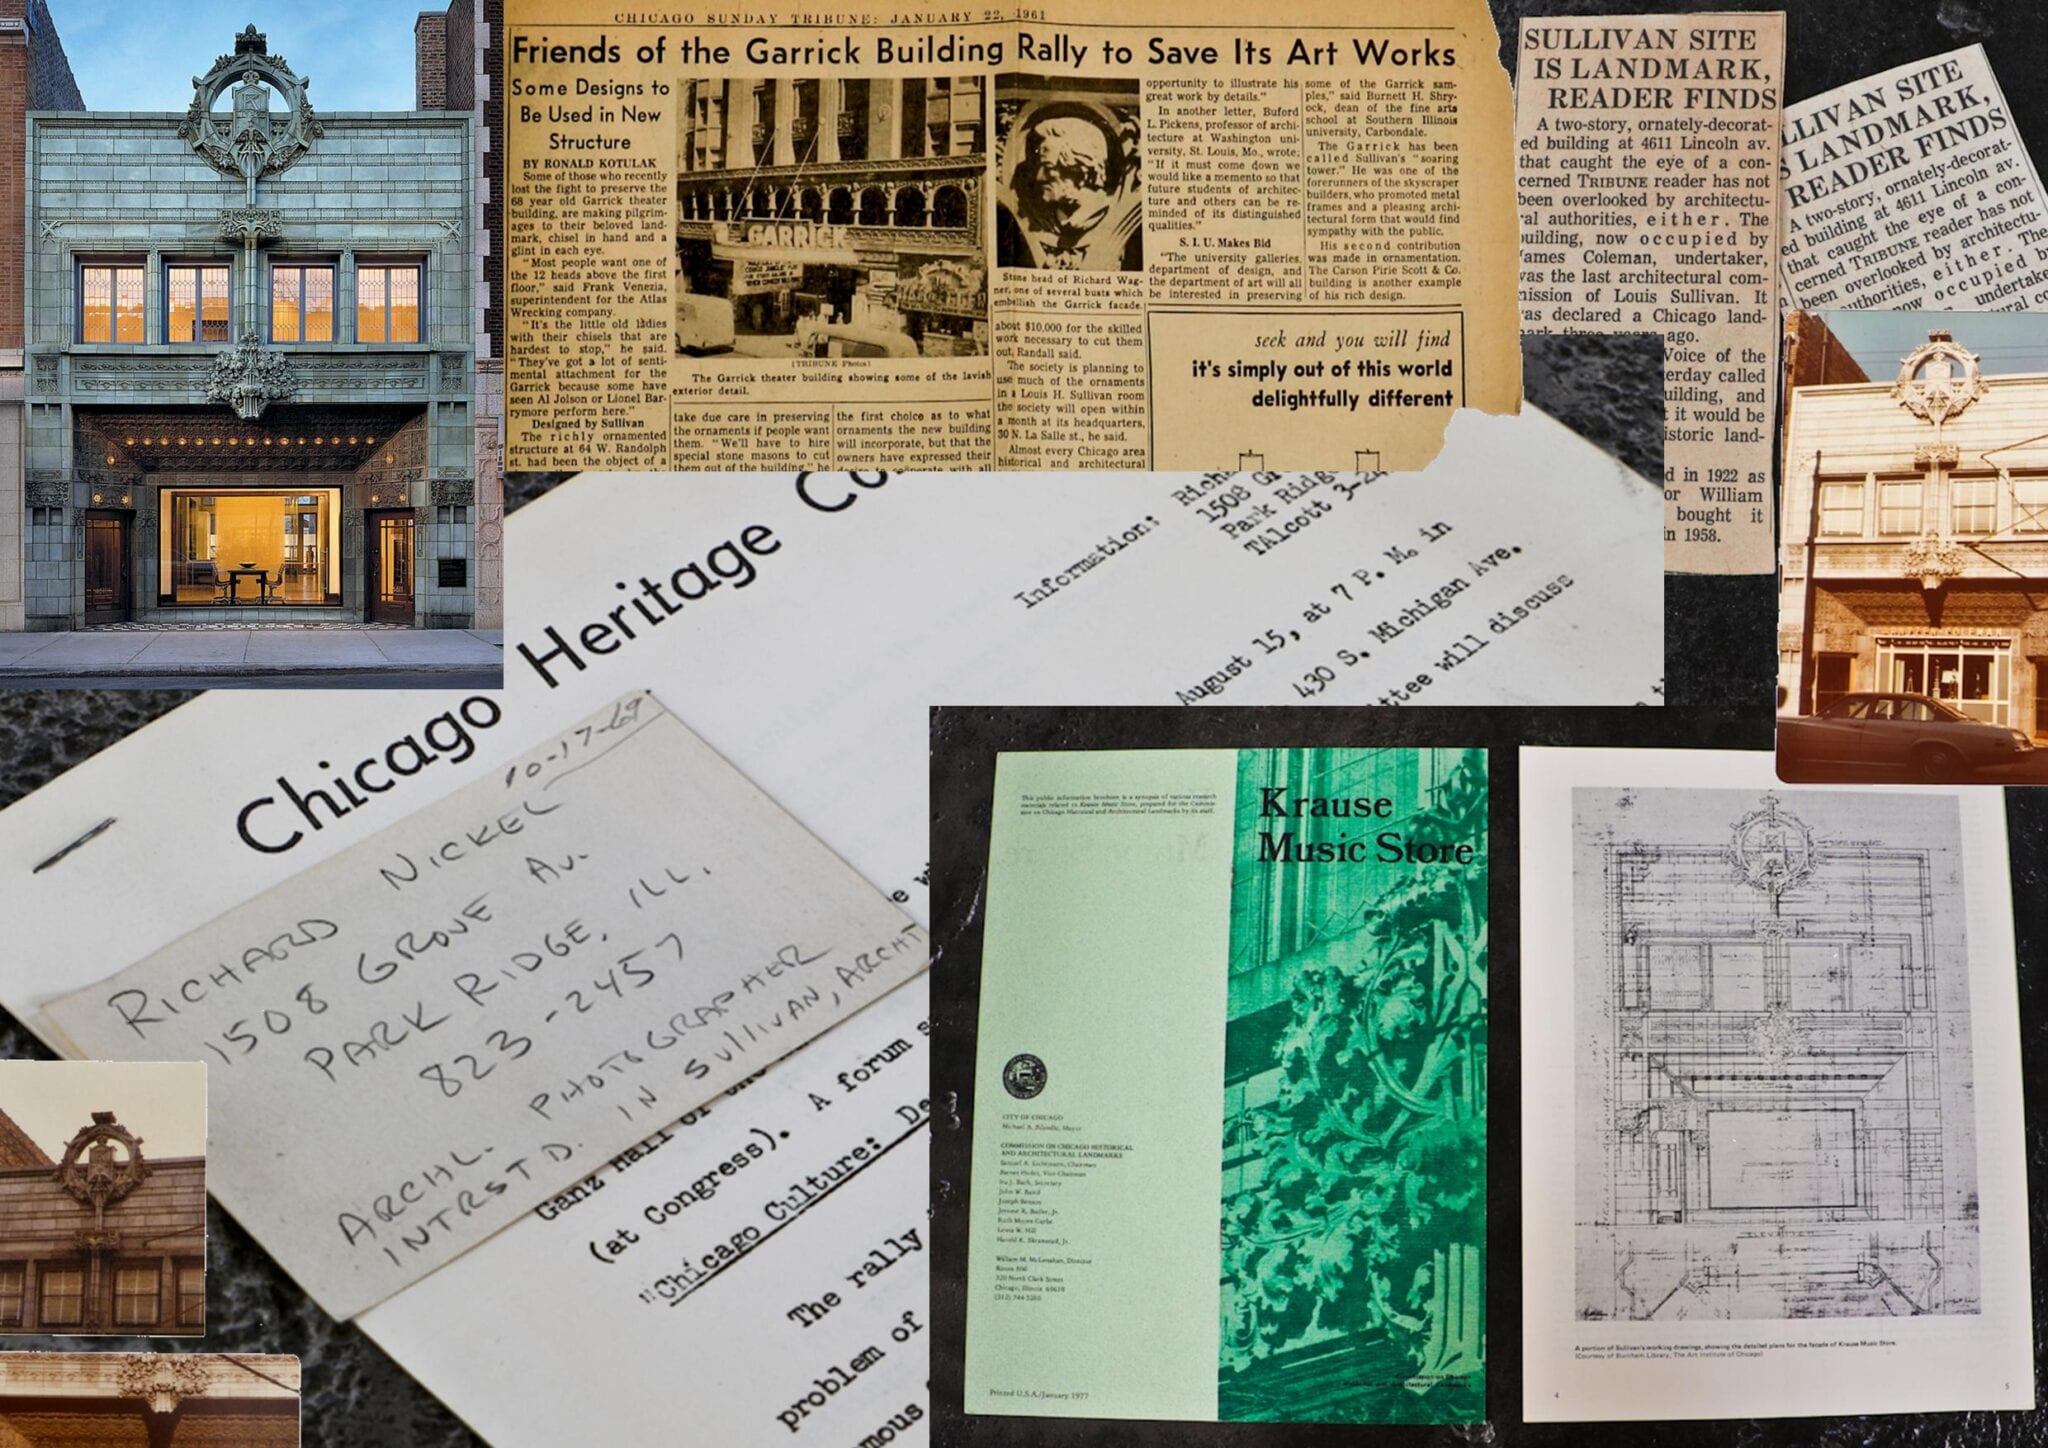 CHICAGO SUNDAY TRIBUNE: JANUARY 22, 1961
Friends of the Garrick Building Rally to Save Its Art Works
Some Designs to
Be Used in New
Structure
BY RONALD KOTULAK
Some of those who recently
lost the fight to preserve the
68 year old Garrick theater
building, are making pilgrim-
ages to their beloved land-
mark, chisel in hand and a
glint in each eye.
"Most people want one of
the 12 heads above the first
floor," said Frank Venezia,
superintendent for the Atlas
Wrecking company.
"It's the little old ladies
with their chisels that are
hardest to stop," he said.
"They've got a lot of senti-
mental attachment for the
Garrick because some have
seen Al Jolson or Lionel Bar-
rymore perform here."
Designed by Sullivan
The richly ornamented
structure at 64 W. Randolph
st. had been the object of a
GARRICK
(TRIBUNE Photos)
The Garrick theater building showing some of the lavish
exterior detail.
take due care in preserving
the ornaments if people want
them. "We'll have to hire
special stone masons to cut
them out of the building," he
the first choice as to what
ornaments the new building
will incorporate, but that the
owners have expressed their
desire to cooperate with all
Stone head of Richard Wag-
ner, one of several busts which
embellish the Garrick facade.
about $10,000 for the skilled
work necessary to cut them
out, Randall said.
The society is planning to
use much of the ornaments
in a Louis H. Sullivan room
the society will open within
a month at its headquarters,
30 N. La Salle st., he said.
Almost every Chicago area
historical and architectural
opportunity to illustrate his
great work by details."
In another letter, Buford
L. Pickens, professor of archi-
tecture at Washington uni-
versity, St. Louis, Mo., wrote:
"If it must come down we
would like a memento so that
future students of architec-
ture and others can be re-
minded of its distinguished
qualities."
S. I. U. Makes Bid
"The university galleries,
department of design, and
the department of art will all
be interested in preserving
some of the Garrick sam-
ples," said Burnett H. Shry-
ock, dean of the fine arts
school at Southern Illinois
university, Carbondale.
The Garrick has been
called Sullivan's "soaring
tower." He was one of the
forerunners of the skyscraper
builders, who promoted metal
frames and a pleasing archi-
tectural form that would find
sympathy with the public.
His second contribution
was made in ornamentation.
The Carson Pirie Scott & Co.
building is another example
of his rich design.
seek and you will find
it's simply out of this world
delightfully different
SULLIVAN SITE
IS LANDMARK,
READER FINDS
A two-story, ornately-decorat-
ed building at 4611 Lincoln av.
that caught the eye of a con-
cerned TRIBUNE reader has not
been overlooked by architectu-
ral authorities, either. The
building, now occupied by
James Coleman, undertaker,
was the last architectural com-
mission of Louis Sullivan. It
was declared a Chicago land-
mark three years ago.
Voice of the
terday called
uilding, and
t it would be
istoric land-
d in 1922 as
or William
bought it
in 1958.
LLIVAN SITE
S LANDMARK,
READER FINDS
A two-story, ornately-decorat-
ed building at 4611 Lincoln av.
that caught the eye of a con-
cerned TRIBUNE reader has not
been overlooked by architectu-
authorities, either. The
now occupied b
undertake
tural co
Chicago Heritage Co
Information:
1508 Gr
Park Ridg
TAlcott 3-24
August 15, at 7 P. M. in
430 S. Michigan Ave.
ttee will discuss
10-17-69
RICHARD NICKEL
1508 GROVE AV.
PARK RIDGE, ILL.
823-2457
ARCHL. PHOTOGRAPHER
INTRSTD. IN SULLIVAN, ARCHT
Ganz Hall of the
(at Congress). A forum s
"Chicago Culture: De
The rally
problem of
mous
Krause
Music Store
This public information brochure is a synopsis of various research
materials related to Krause Music Store, prepared for the Commis-
sion on Chicago Historical and Architectural Landmarks by its staff.
CITY OF CHICAGO
Michael A. Bilandic, Mayor
COMMISSION ON CHICAGO HISTORICAL
AND ARCHITECTURAL LANDMARKS
Samuel A. Lichtmann, Chairman
Barnet Hodes, Vice-Chairman
Ira J. Bach, Secretary
John W. Baird
Joseph Benson
Jerome R. Butler, Jr.
Ruth Moore Garbe
Lewis W. Hill
Harold K. Skramstad, Jr.
William M. McLenahan, Director
Room 800
320 North Clark Street
Chicago, Illinois 60610
(312) 744-3200
Printed U.S.A./January 1977
ELEVATION
A portion of Sullivan's working drawings, showing the detailed plans for the facade of Krause Music Store.
(Courtesy of Burnham Library, The Art Institute of Chicago)
4
5